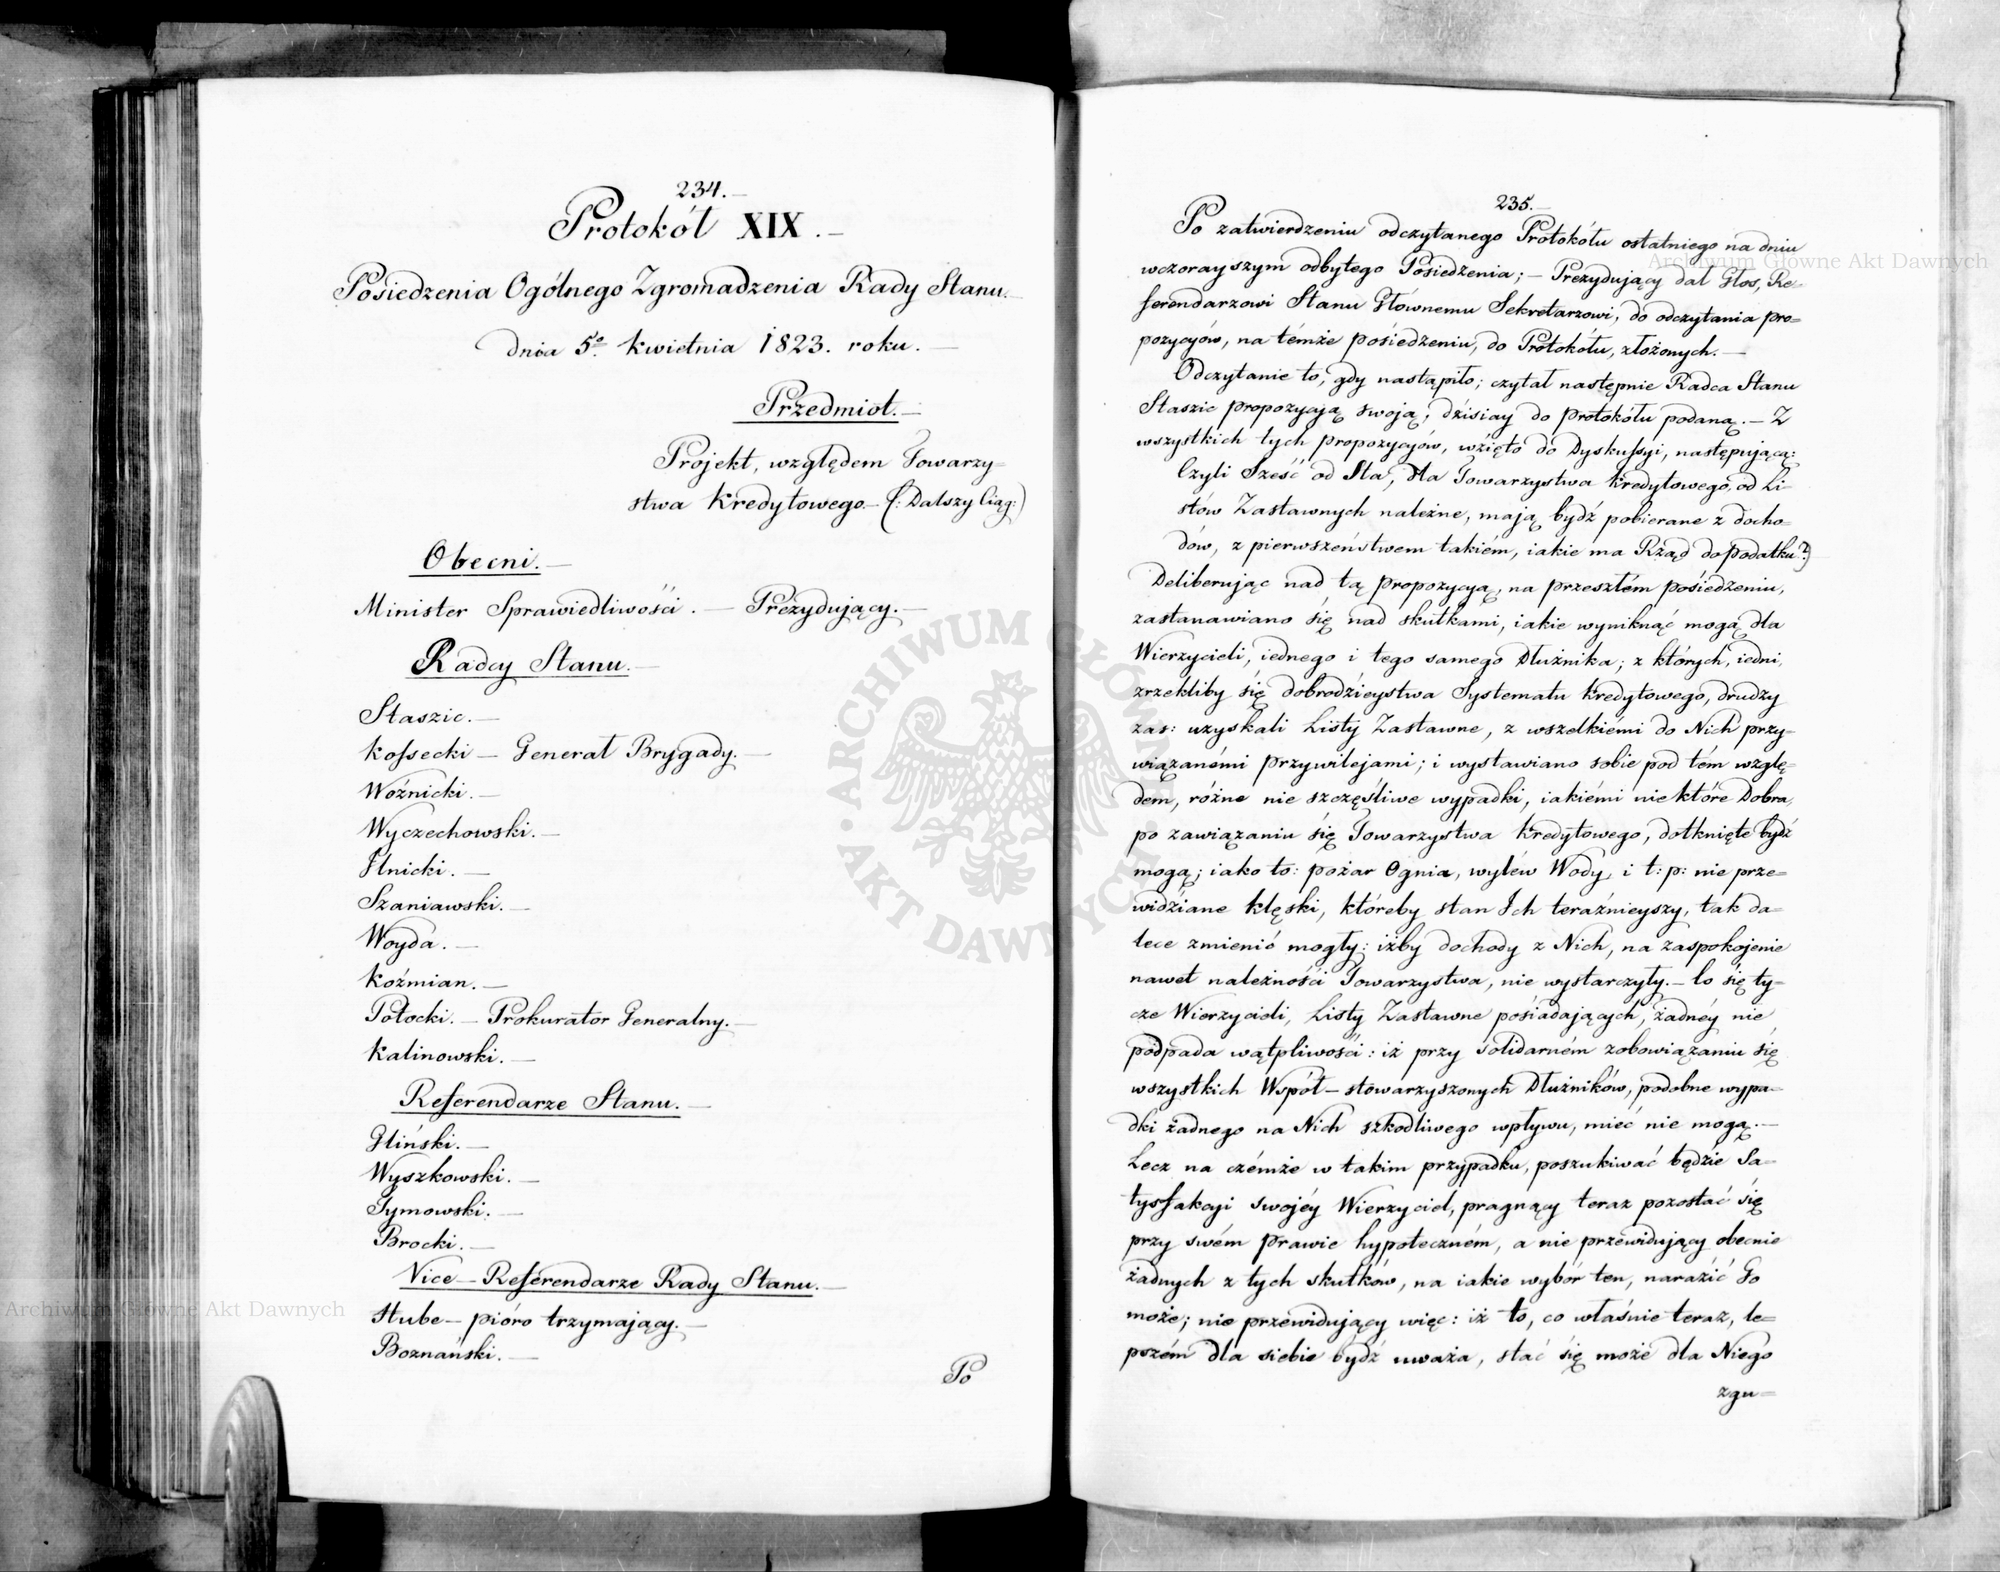 234.—
Protokół XIX.—
Posiedzenia Ogólnego Zgromadzenia Rady Stanu.—
dnia 5º kwietnia 1823. roku.—
Przedmiot.—
Projekt, względem Towarzy-
stwa Kredytowego.— (: Dalszy Ciąg:)
Obecni.—
Minister Sprawiedliwości.— Prezydujący.—
Radcy Stanu.—
Staszic.—
Kossecki — Generał Brygady.—
Woźnicki.—
Wyczechowski.—
Ilnicki.—
Szaniawski.—
Woyda.—
Koźmian.—
Potocki.— Prokurator Generalny.—
Kalinowski.—
Referendarze Stanu.—
Gliński.—
Wyszkowski.—
Tymowski.—
Brocki.—
Vice-Referendarze Rady Stanu.—
Hube — pióro trzymający.—
Boznański.—
Po
235.—
Po zatwierdzeniu odczytanego Protokółu ostatniego na dniu
wczorayszym odbytego Posiedzenia; — Prezydujący dał Głos, Re-
ferendarzowi Stanu Głównemu Sekretarzowi, do odczytania pro-
pozycyów, na témże posiedzeniu, do Protokółu, złożonych.—
Odczytanie to, gdy nastąpiło; czytał następnie Radca Stanu
Staszic propozycją swoją, dzisiay do protokółu podaną.— Z
wszystkich tych propozycyów, wzięto do Dyskussyi, następującą:
Czyli Sześć od Sta, dla Towarzystwa Kredytowego, od Li-
stów Zastawnych należne, mają bydź pobierane z docho-
dów, z pierwszeństwem takiém, iakie ma Rząd do podatku?)
Deliberując nad tą propozycyą, na przeszłém posiedzeniu,
zastanawiano się nad skutkami, iakie wyniknąć mogą dla
Wierzycieli, iednego i tego samego Dłużnika; z których, iedni,
zrzekliby się dobrodzieystwa Systematu Kredytowego, drudzy
zas: uzyskali Listy Zastawne, z wszelkiémi do Nich przy-
wiązanémi przywilejami; i wystawiano sobie pod tém wzglę-
dem, różne nie szczęśliwe wypadki, iakiémi niektóre Dobra,
po zawiązaniu się Towarzystwa Kredytowego, dotknięte bydź
mogą; iako to: pożar Ognia, wylew Wody, i t: p: nie prze-
widziane klęski, któreby stan Ich teraźnieyszy, tak da-
lece zmienić mogły: iżby dochody z Nich, na zaspokojenie
nawet należności Towarzystwa, nie wystarczyły.— Co się ty-
cze Wierzycieli, Listy Zastawne posiadających, żadnéy nie
podpada wątpliwości: iż przy solidarném zobowiązaniu się
wszystkich Współ-stowarzyszonych Dłużników, podobne wypa-
dki żadnego na Nich szkodliwego wpływu, mieć nie mogą.—
Lecz na czémże w takim przypadku, poszukiwać będzie Sa-
tysfakcyi swojéy Wierzyciel, pragnący teraz pozostać się
przy swém prawie hypoteczném, a nie przewidujący obecnie
żadnych z tych skutków, na iakie wybór ten, narazić Go
może; nie przewidujący więc: iż to, co właśnie teraz, le-
pszém dla siebie bydź uważa, stać się może dla Niego
zgu-
Archiwum Główne Akt Dawnych
Archiwum Główne Akt Dawnych
ARCHIWUM GŁÓWNE AKT DAWNYCH